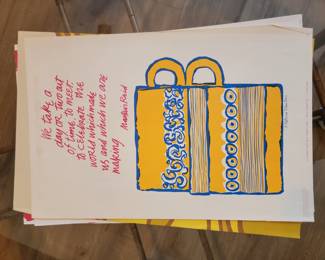 We take a
day or two out
of time, to meet,
to celebrate the
world which made
us and which we are
making